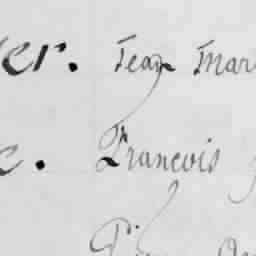 er. Jean Mar
c. Francois